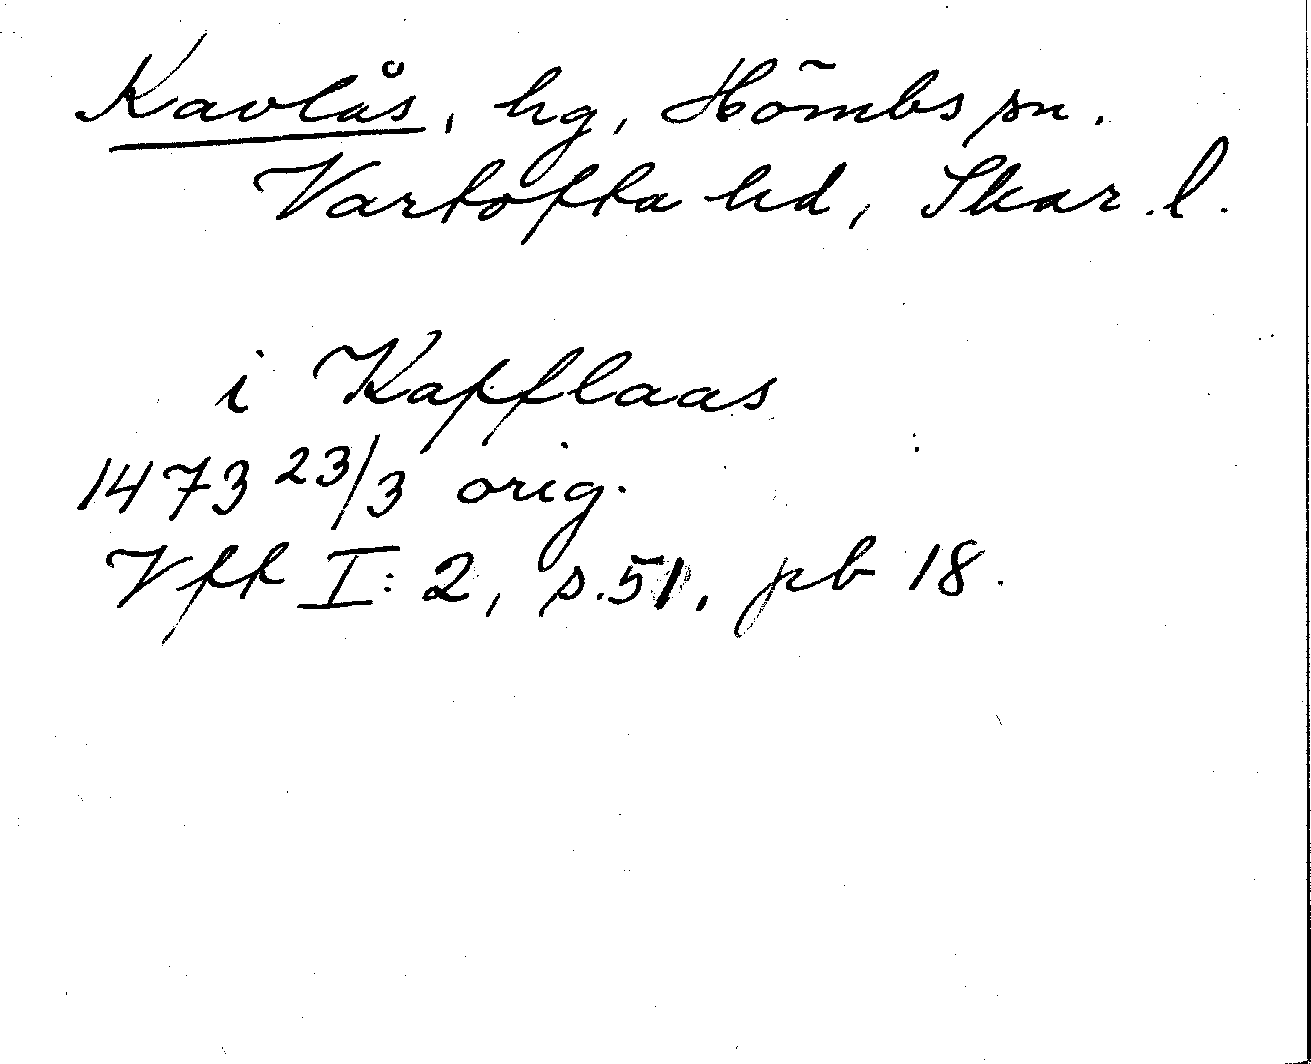 Kavlås, hg, Hömbs sn.
Vartofta hd, Skar. l.
i Kapflaas
1473 23/3 orig.
Vft I: 2, s. 51, pb 18.